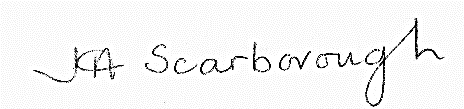 JCA Scarborough